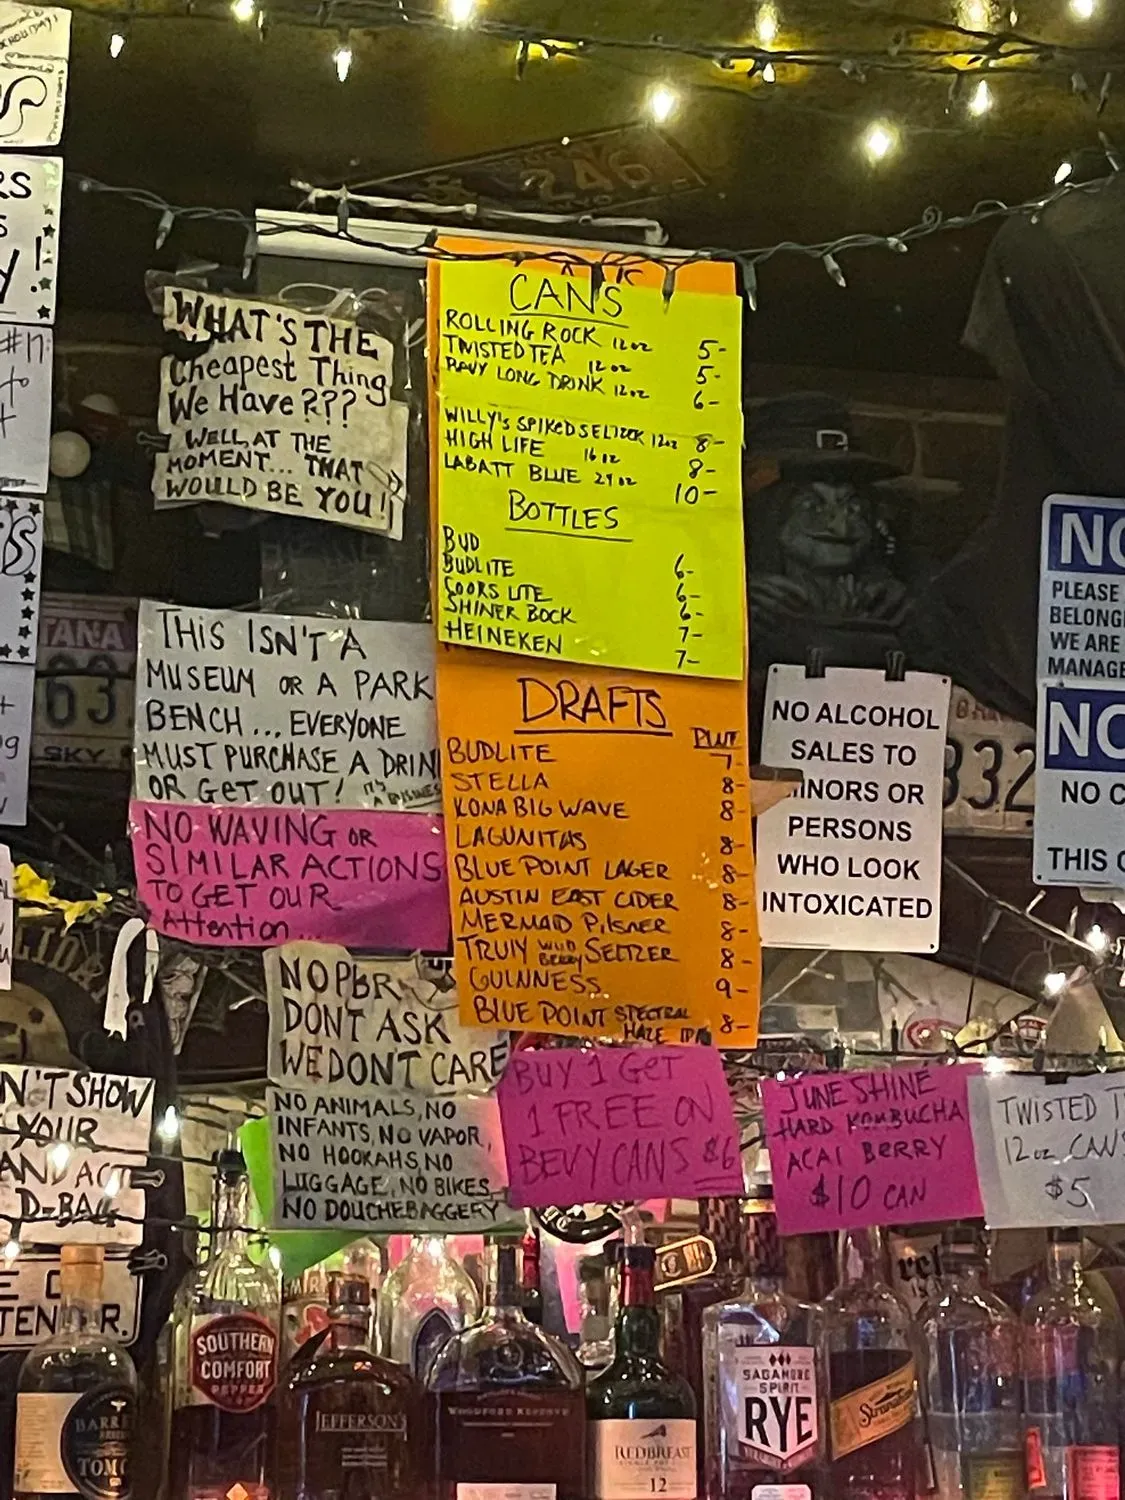 WHAT'S THE
Cheapest Thing
We Have???
WELL, AT THE
MOMENT... THAT
WOULD BE YOU!
THIS ISN'T A
MUSEUM OR A PARK
BENCH... EVERYONE
MUST PURCHASE A DRIN
OR GET OUT! IT'S A BUSINESS
NO WAVING OR
SIMILAR ACTIONS
TO GET OUR
Attention...
NO PBR
DONT ASK
WE DONT CARE
NO ANIMALS, NO
INFANTS, NO VAPOR,
NO HOOKAHS, NO
LUGGAGE, NO BIKES,
NO DOUCHEBAGGERY
CANS
ROLLING ROCK 12oz 5-
TWISTED TEA 12oz 5-
LONG DRINK 12oz 6-
WILLY'S SPIKED SELTZER 12oz 8-
HIGH LIFE 16oz 8-
LABATT BLUE 24oz 10-
BOTTLES
BUD
BUDLITE 6-
COORS LITE 6-
SHINER BOCK 6-
HEINEKEN 7-
7-
DRAFTS
PINT
BUDLITE 7-
STELLA 8-
KONA BIG WAVE 8-
LAGUNITAS 8-
BLUE POINT LAGER 8-
AUSTIN EAST CIDER 8-
MERMAID PILSNER 8-
TRULY WILD BERRY SELTZER 8-
GUINNESS 9-
BLUE POINT SPECTRAL HAZE IPA 8-
BUY 1 GET
1 FREE ON
BEVY CANS $6
NO ALCOHOL
SALES TO
INORS OR
PERSONS
WHO LOOK
INTOXICATED
JUNE SHINE
HARD KOMBUCHA
ACAI BERRY
$10 CAN
TWISTED T
12oz CANS
$5
NO
PLEASE
BELONG
WE ARE
MANAGE
NO
NO C
THIS
N'T SHOW
YOUR
AND ACT
D-BAG
TEN R.
TANA
63
SKY
332
246
SOUTHERN
COMFORT
PEPPER
JEFFERSON'S
WOODFORD RESERVE
REDBREAST
12
SAGAMORE
SPIRIT
RYE
BARRE
TOMC